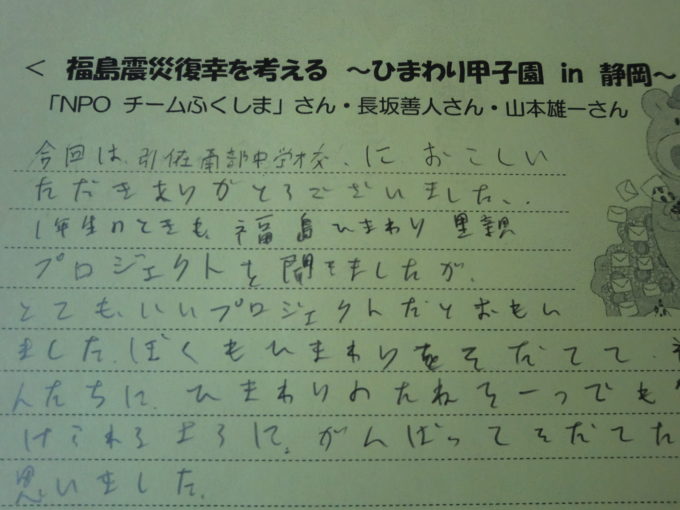 < 福島震災復幸を考える ～ひまわり甲子園 in 静岡～
「NPO チームふくしま」さん・長坂善人さん・山本雄一さん
今回は、引佐南部中学校、に おこしい
ただきありがとうございました、.
1年生のときも、福島ひまわり 里親
プロジェクトを聞きましたが、
とても、いいプロジェクトだとおもい
ました.ぼくもひまわりをそだてて、
んたちに、ひまわりのたねを一つでも
けられるように。がんばってそだてた
思いました.